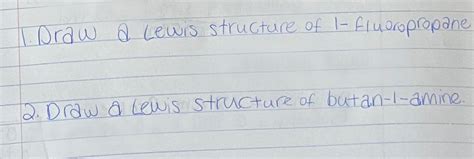 1. Draw a Lewis structure of 1-fluoropropane
2. Draw a Lewis structure of butan-1-amine.